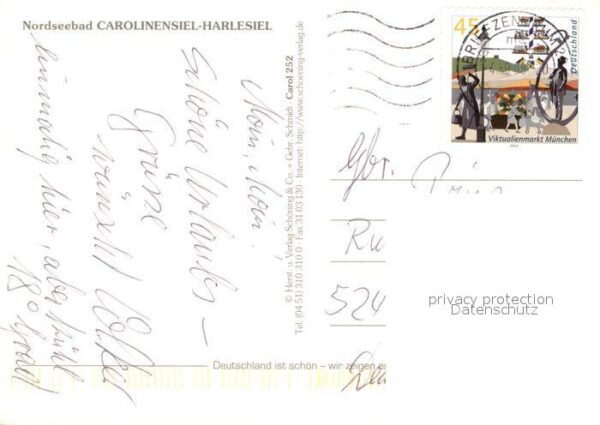 Nordseebad CAROLINENSIEL-HARLESIEL
Moin, Moin!
Schöne Urlaubs –
Grüsse
wünscht
einmalig hier, aber kühl
18° Grad
© Herst. u. Verlag Schöning & Co. + Gebr. Schmidt Carol 252
Tel. (04 51) 310 310 0 · Fax 31 03 130 · Internet: http://www.schoening-verlag.de
45
BRIEFZENTRUM
Deutschland
Viktualienmarkt München
Gbr.
Ru
524
privacy protection
Datenschutz
Deutschland ist schön – wir zeigen e